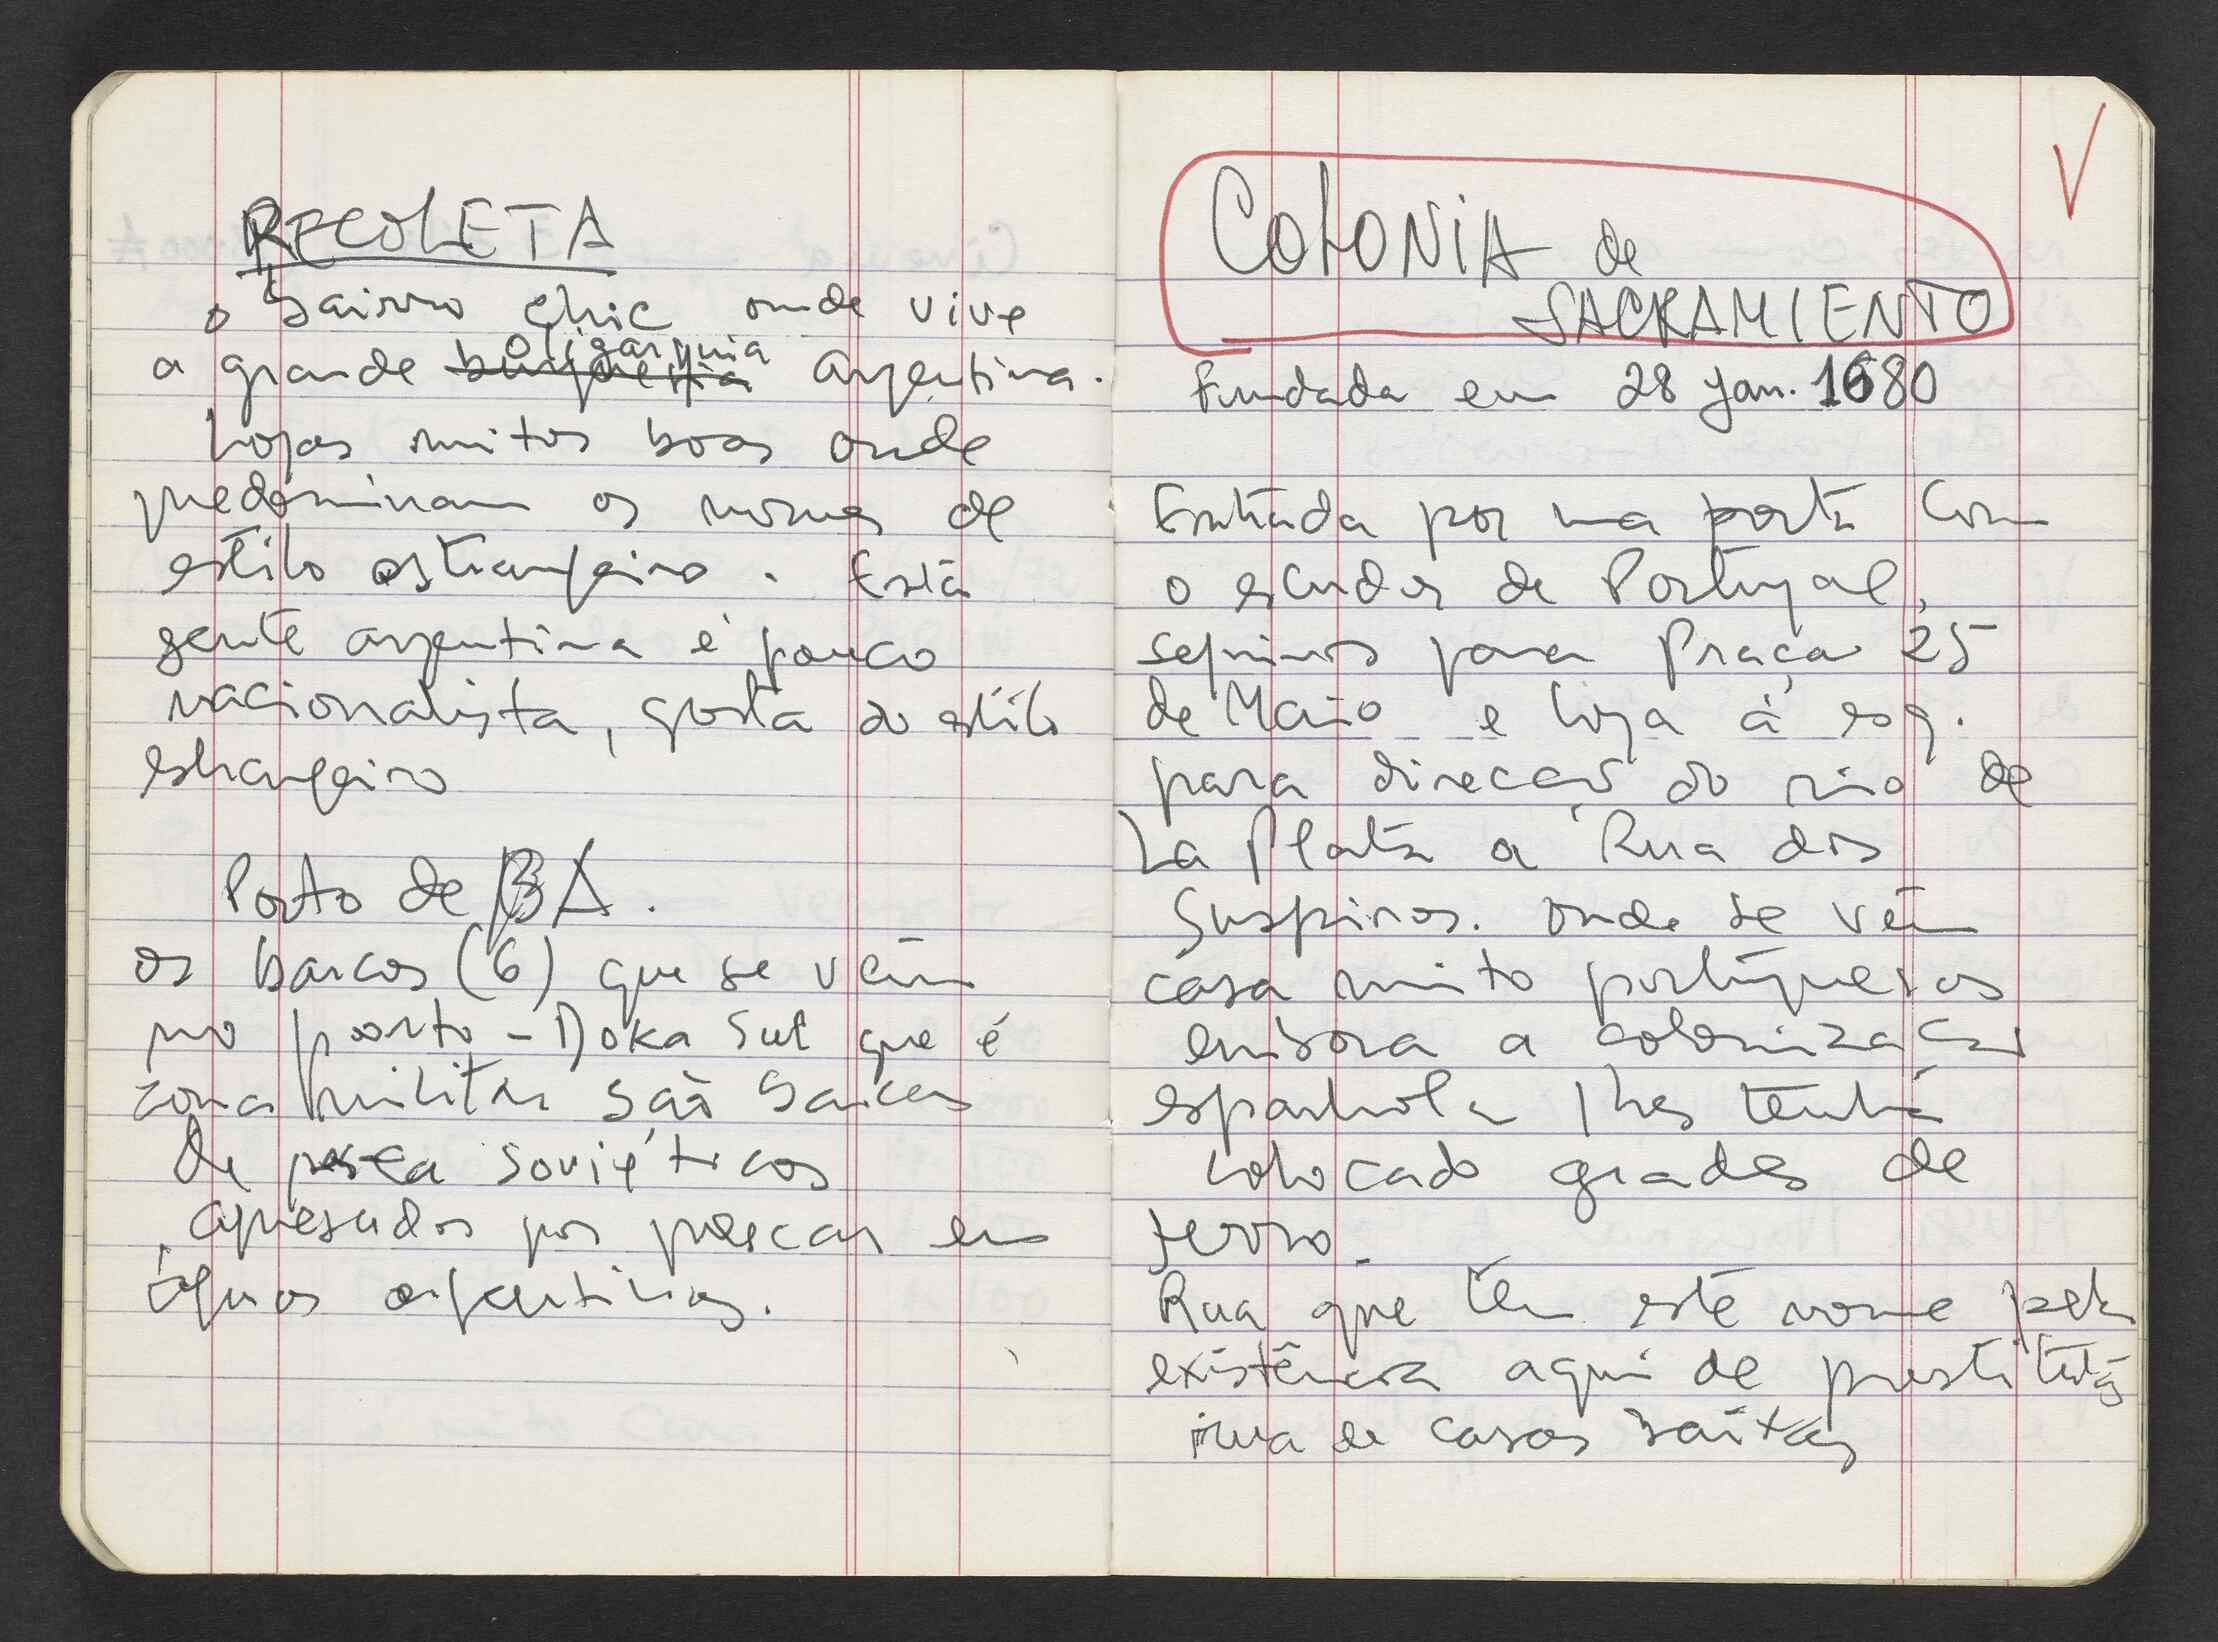 RECOLETA
o bairro chic onde vive
a grande burguesia oligarquia argentina.
Lojas muitos boas onde
predominam os nomes de
estilo estrangeiro. Esta
gente argentina é pouco
nacionalista, gosta do estilo
estrangeiro
Porto de BA.
os barcos (6) que se vêm
no porto - Doka Sul que é
zona militar são barcos
de pesca soviéticos
apresados por pescar em
águas argentinas.
COLONIA de
SACRAMIENTO
Fundada em 28 Jan. 1680
Entrada por uma porta com
o escudos de Portugal,
seguimos para Praça 25
de Maio e loja á esq.
para direcção do rio de
La Plata a Rua dos
Suspiros. onde se vêm
casa muito portuguesas
embora a colonização
espanhola lhes tenha
colocado grades de
ferro.
Rua que tem este nome pela
existência aqui de prostitutas
rua de casas baixas